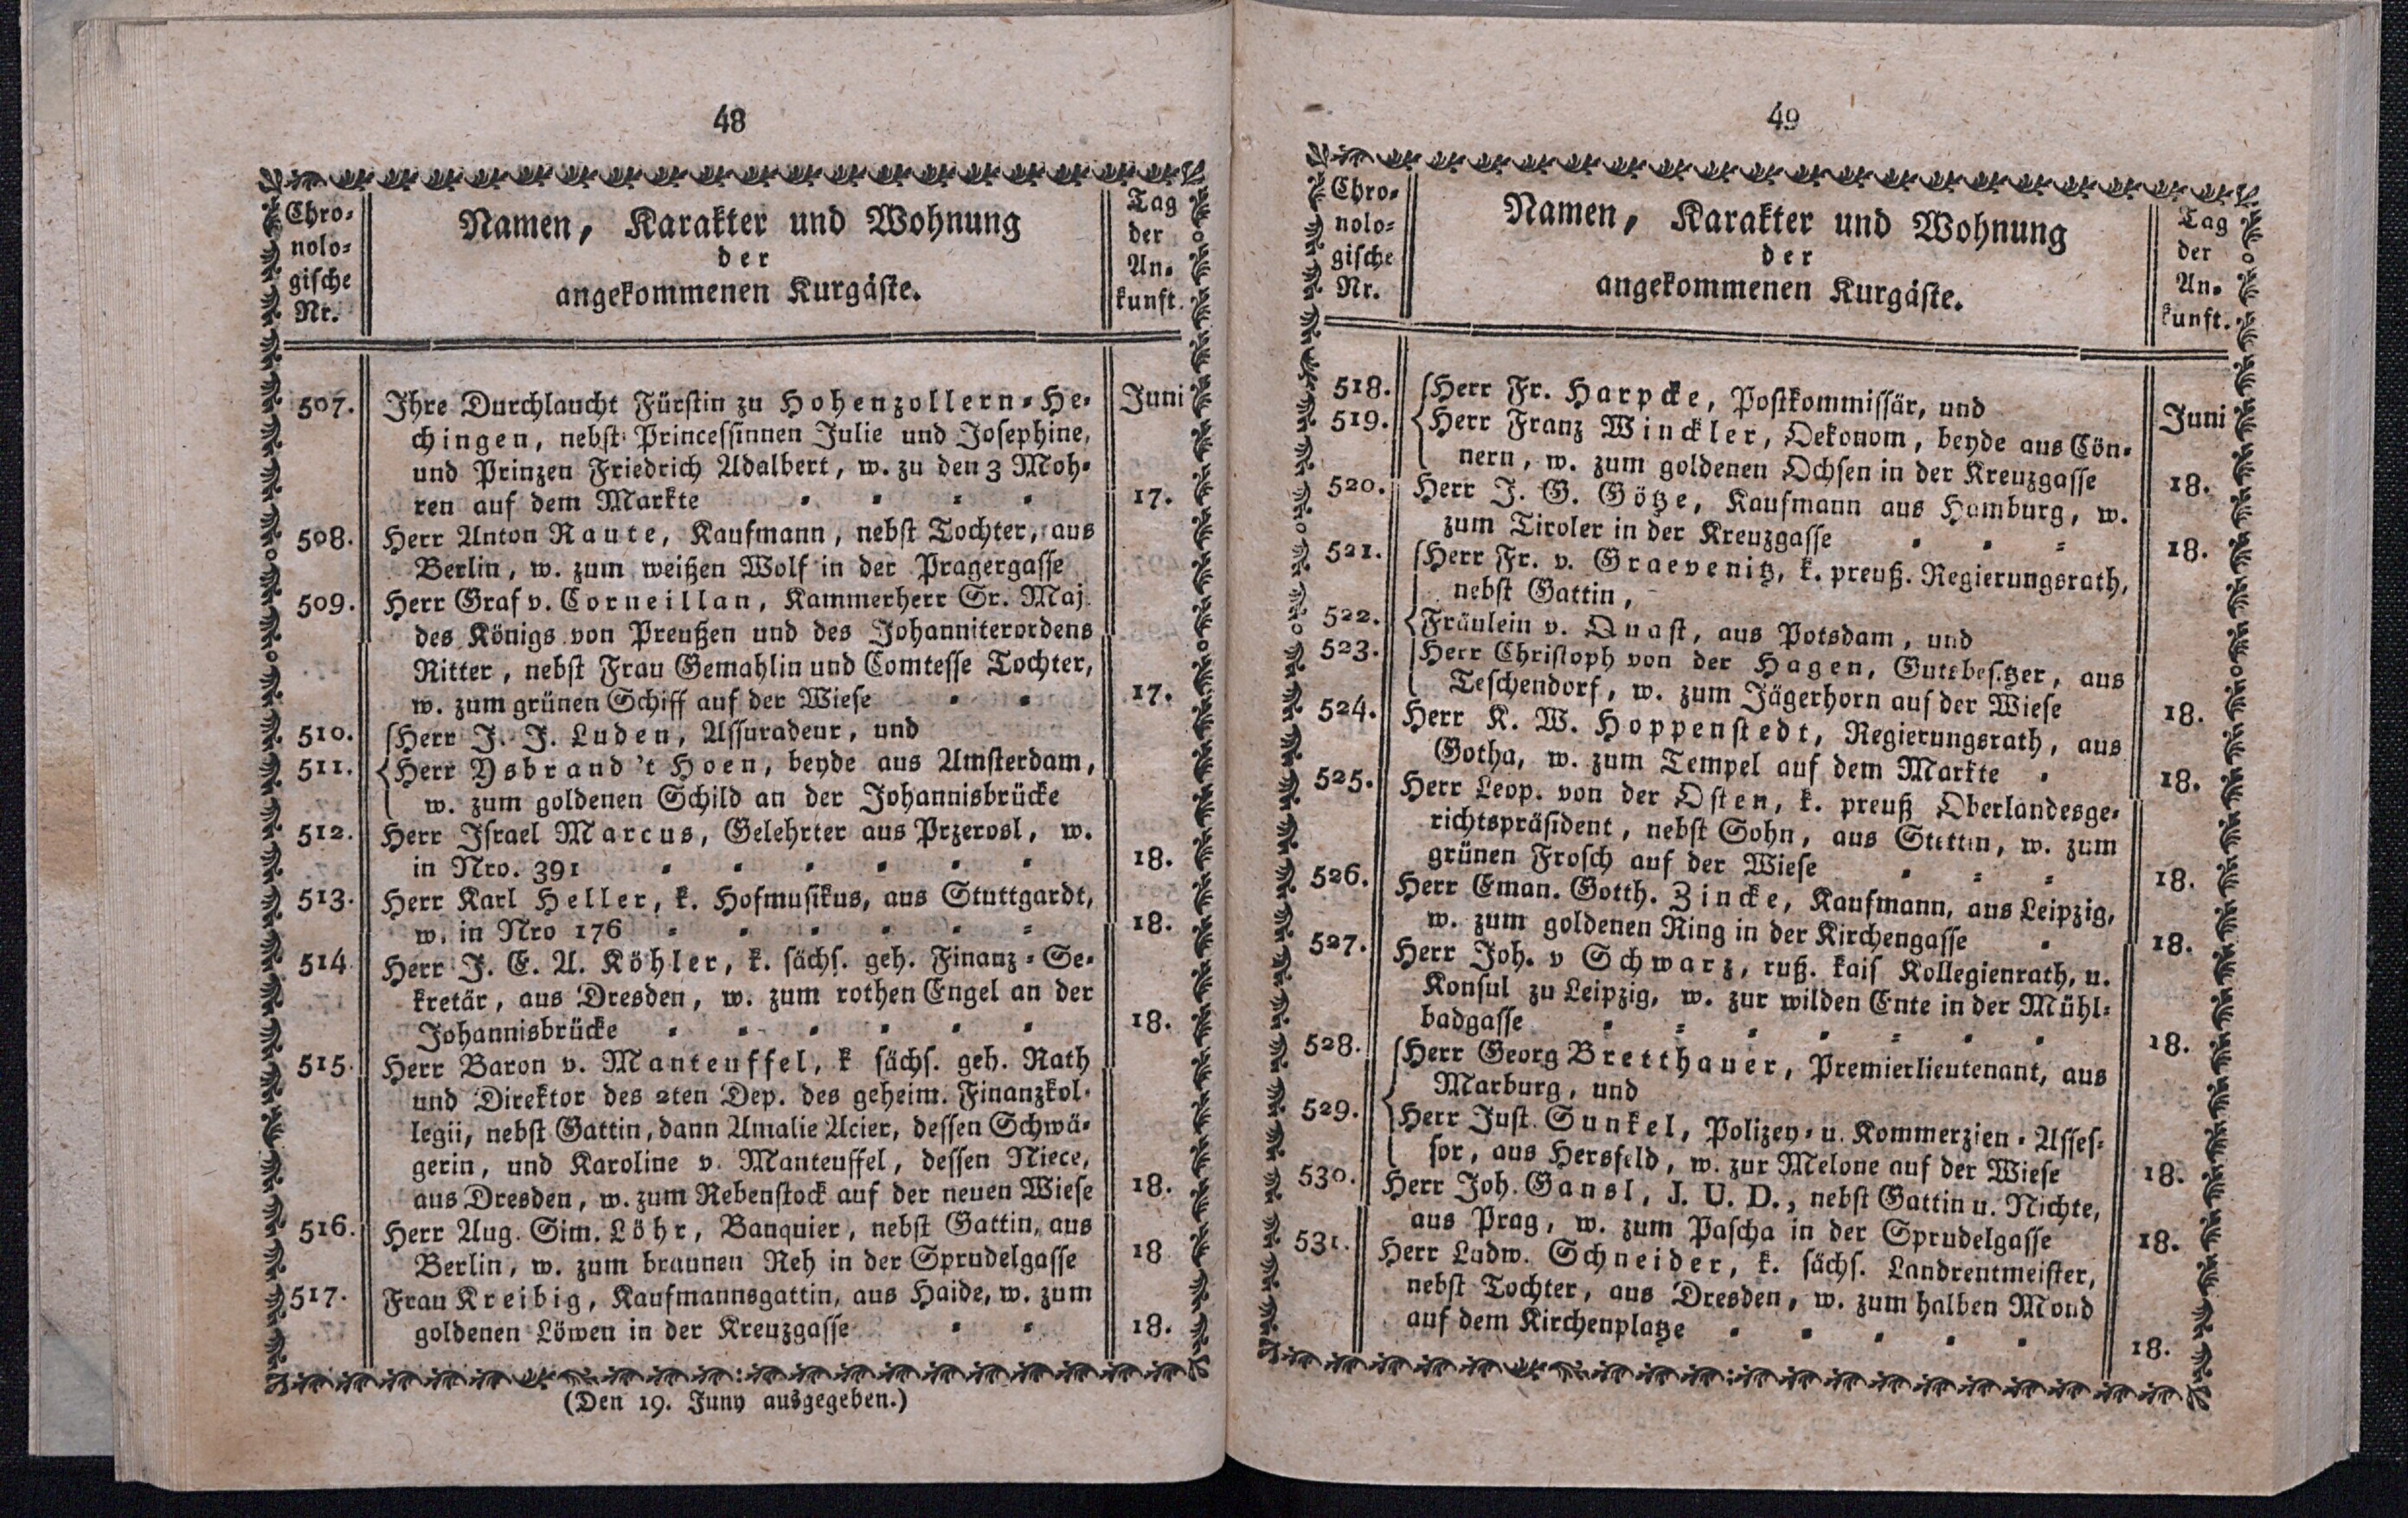 48
Chro-
nolo-
gische
Nr.
Namen, Karakter und Wohnung
der
angekommenen Kurgäste.
Tag
der
An-
kunft.
Juni
507. Ihre Durchlaucht Fürstin zu Hohenzollern-He-
chingen, nebst Princessinnen Julie und Josephine,
und Prinzen Friedrich Adalbert, w. zu den 3 Moh-
ren auf dem Markte - - - - 17.
508. Herr Anton Raute, Kaufmann, nebst Tochter, aus
Berlin, w. zum weißen Wolf in der Pragergasse
509. Herr Graf v. Corneillan, Kammerherr Sr. Maj.
des Königs von Preußen und des Johanniterordens
Ritter, nebst Frau Gemahlin und Comtesse Tochter,
w. zum grünen Schiff auf der Wiese - - 17.
510. Herr J. J. Luden, Assuradeur, und
511. Herr Ysbrand 't Hoen, beyde aus Amsterdam,
w. zum goldenen Schild an der Johannisbrücke
512. Herr Israel Marcus, Gelehrter aus Przerosl, w.
in Nro. 391 - - - - - - 18.
513. Herr Karl Heller, k. Hofmusikus, aus Stuttgardt,
w. in Nro 176 - - - - - - 18.
514 Herr J. E. A. Köhler, k. sächs. geh. Finanz-Se-
kretär, aus Dresden, w. zum rothen Engel an der
Johannisbrücke - - - - - - 18.
515. Herr Baron v. Manteuffel, k sächs. geh. Rath
und Direktor des 2ten Dep. des geheim. Finanzkol-
legii, nebst Gattin, dann Amalie Acier, dessen Schwä-
gerin, und Karoline v. Manteuffel, dessen Niece,
aus Dresden, w. zum Rebenstock auf der neuen Wiese 18.
516. Herr Aug. Sim. Löhr, Banquier, nebst Gattin, aus
Berlin, w. zum braunen Reh in der Sprudelgasse 18
517. Frau Kreibig, Kaufmannsgattin, aus Haide, w. zum
goldenen Löwen in der Kreuzgasse - - 18.
(Den 19. Juny ausgegeben.)
49
Chro-
nolo-
gische
Nr.
Namen, Karakter und Wohnung
der
angekommenen Kurgäste.
Tag
der
An-
kunft.
Juni
518. Herr Fr. Harpcke, Postkommissär, und
519. Herr Franz Winckler, Oekonom, beyde aus Cön-
nern, w. zum goldenen Ochsen in der Kreuzgasse 18.
520. Herr J. G. Götze, Kaufmann aus Hamburg, w.
zum Tiroler in der Kreuzgasse - - - 18.
521. Herr Fr. v. Graevenitz, k. preuß. Regierungsrath,
nebst Gattin,
522. Fräulein v. Quast, aus Potsdam, und
523. Herr Christoph von der Hagen, Gutsbesitzer, aus
Teschendorf, w. zum Jägerhorn auf der Wiese 18.
524. Herr K. W. Hoppenstedt, Regierungsrath, aus
Gotha, w. zum Tempel auf dem Markte - 18.
525. Herr Leop. von der Osten, k. preuß Oberlandesge-
richtspräsident, nebst Sohn, aus Stettin, w. zum
grünen Frosch auf der Wiese - - - 18.
526. Herr Eman. Gotth. Zincke, Kaufmann, aus Leipzig,
w. zum goldenen Ring in der Kirchengasse - 18.
527. Herr Joh. v Schwarz, ruß. kais Kollegienrath, u.
Konsul zu Leipzig, w. zur wilden Ente in der Mühl-
badgasse - - - - - - - 18.
528. Herr Georg Bretthauer, Premierlieutenant, aus
Marburg, und
529. Herr Just. Sunkel, Polizey- u. Kommerzien-Asses-
sor, aus Hersfeld, w. zur Melone auf der Wiese 18.
530. Herr Joh. Gansl, J. U. D., nebst Gattin u. Nichte,
aus Prag, w. zum Pascha in der Sprudelgasse 18.
531. Herr Ludw. Schneider, k. sächs. Landrentmeister,
nebst Tochter, aus Dresden, w. zum halben Mond
auf dem Kirchenplatze - - - - - 18.